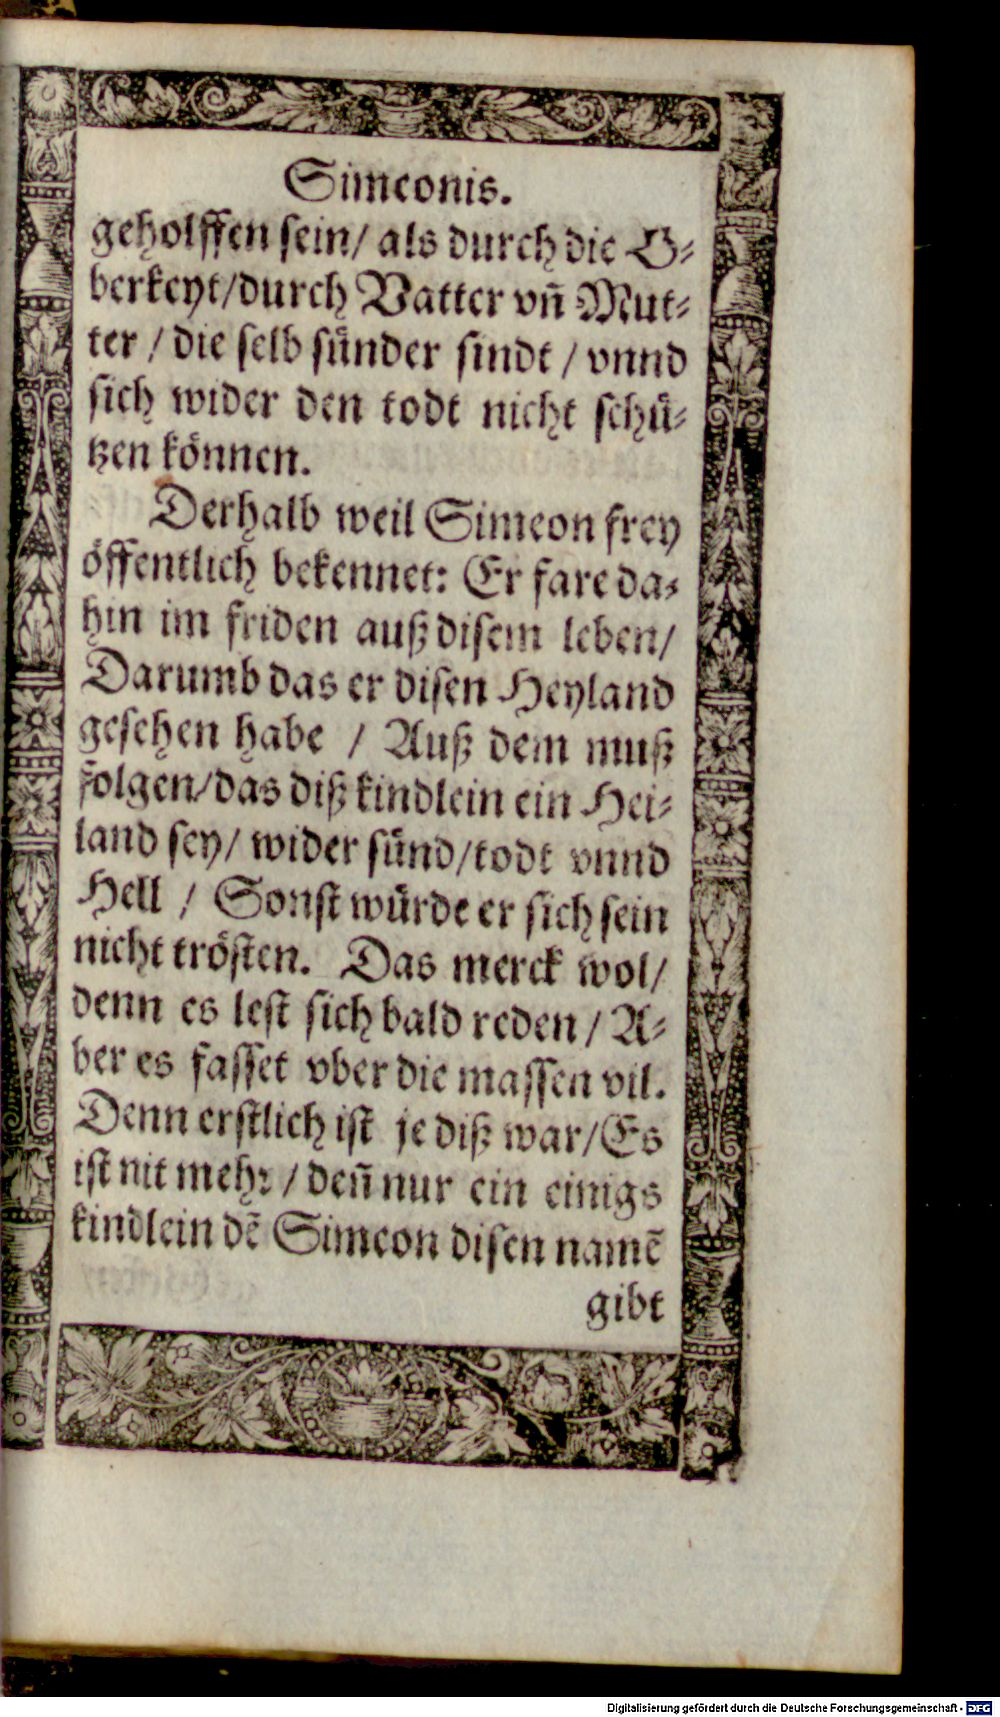 Simeonis.
geholffen sein/ als durch die O-
berkeyt/durch Vatter vn̄ Mut-
ter / die selb sünder sindt / vnnd
sich wider den todt nicht schü-
tzen können.
Derhalb weil Simeon frey
öffentlich bekennet: Er fare da-
hin im friden auß disem leben/
Darumb das er disen Heyland
gesehen habe / Auß dem muß
folgen/das diß kindlein ein Hei-
land sey/ wider sünd/todt vnnd
Hell / Sonst würde er sich sein
nicht trösten. Das merck wol/
denn es lest sich bald reden / A-
ber es fasset vber die massen vil.
Denn erstlich ist je diß war/Es
ist nit mehr / den̄ nur ein einigs
kindlein dē Simeon disen namē
gibt
Digitalisierung gefördert durch die Deutsche Forschungsgemeinschaft - DFG